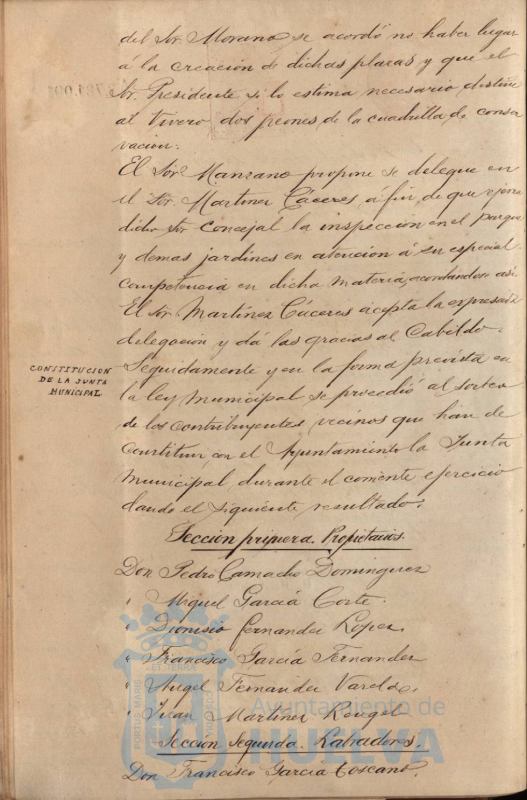 del Sor. Morano, se acordó no haber lugar
á la creación de dichas plazas y que el
Sr. Presidente si lo estima necesario destine
al Vivero dos peones de la cuadrilla de conser
vación.
El Sor. Manzano propone se delegue en
el Sor. Martinez Cáceres, á fin de que ejerza
dicho Sor. Concejal la inspección en el parque
y demas jardines en atención á su especial
competencia en dicha materia, acordandose asi.
El Sor. Martinez Cáceres acepta la expresada
delegación y dá las gracias al Cabildo.
CONSTITUCION
DE LA JUNTA
MUNICIPAL
Seguidamente y en la forma prevista en
la ley Municipal se procedió al sorteo
de los contribuyentes vecinos que han de
Constituir con el Ayuntamiento la Junta
Municipal durante el corriente ejercicio
dando el siguiente resultado.
Sección primera. Propietarios.
Don Pedro Camacho Dominguez
" Miguel Garciá Corte.
" Dionisio Fernandez Lopez.
" Francisco Garciá Fernandez
" Angel Fernandez Varela.
" Juan Martinez Rengel
Sección Segunda. Labradores.
Don Francisco Garcia Toscano.
PORTUS MARIS
ET TERRAE
Ayuntamiento de
HUELVA